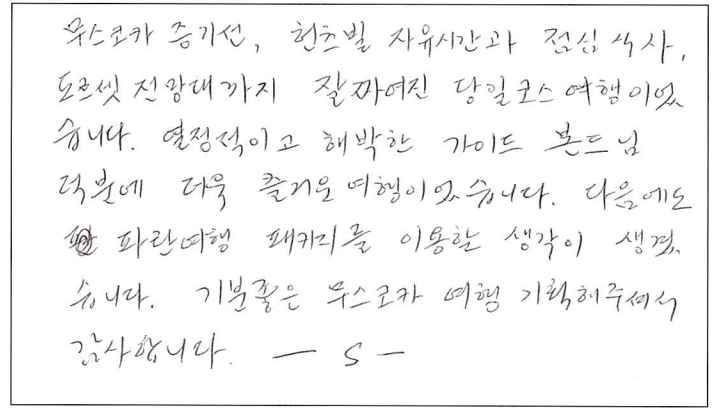 무스코카 증기선, 헌츠빌 자유시간과 점심 식사,
도르셋 전망대까지 잘 짜여진 당일코스 여행이었
습니다. 열정적이고 해박한 가이드 본드님
덕분에 더욱 즐거운 여행이었습니다. 다음에도
파란여행 패키지를 이용할 생각이 생겼
습니다. 기분좋은 무스코카 여행 기획해주셔서
감사합니다. — S —